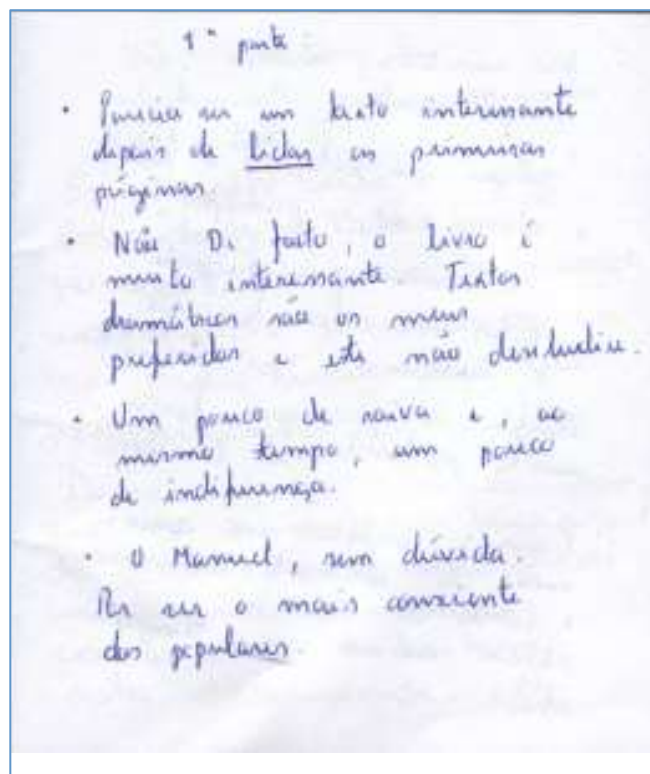 1ª parte
• Parecia ser um texto interessante
depois de lidas as primeiras
páginas.
• Não. De facto, o livro é
muito interessante. Textos
dramáticos são os meus
preferidos e este não deslustra.
• Um pouco de raiva e, ao
mesmo tempo, um pouco
de indiferença.
• O Manuel, sem dúvida.
Por ser o mais consciente
dos populares.